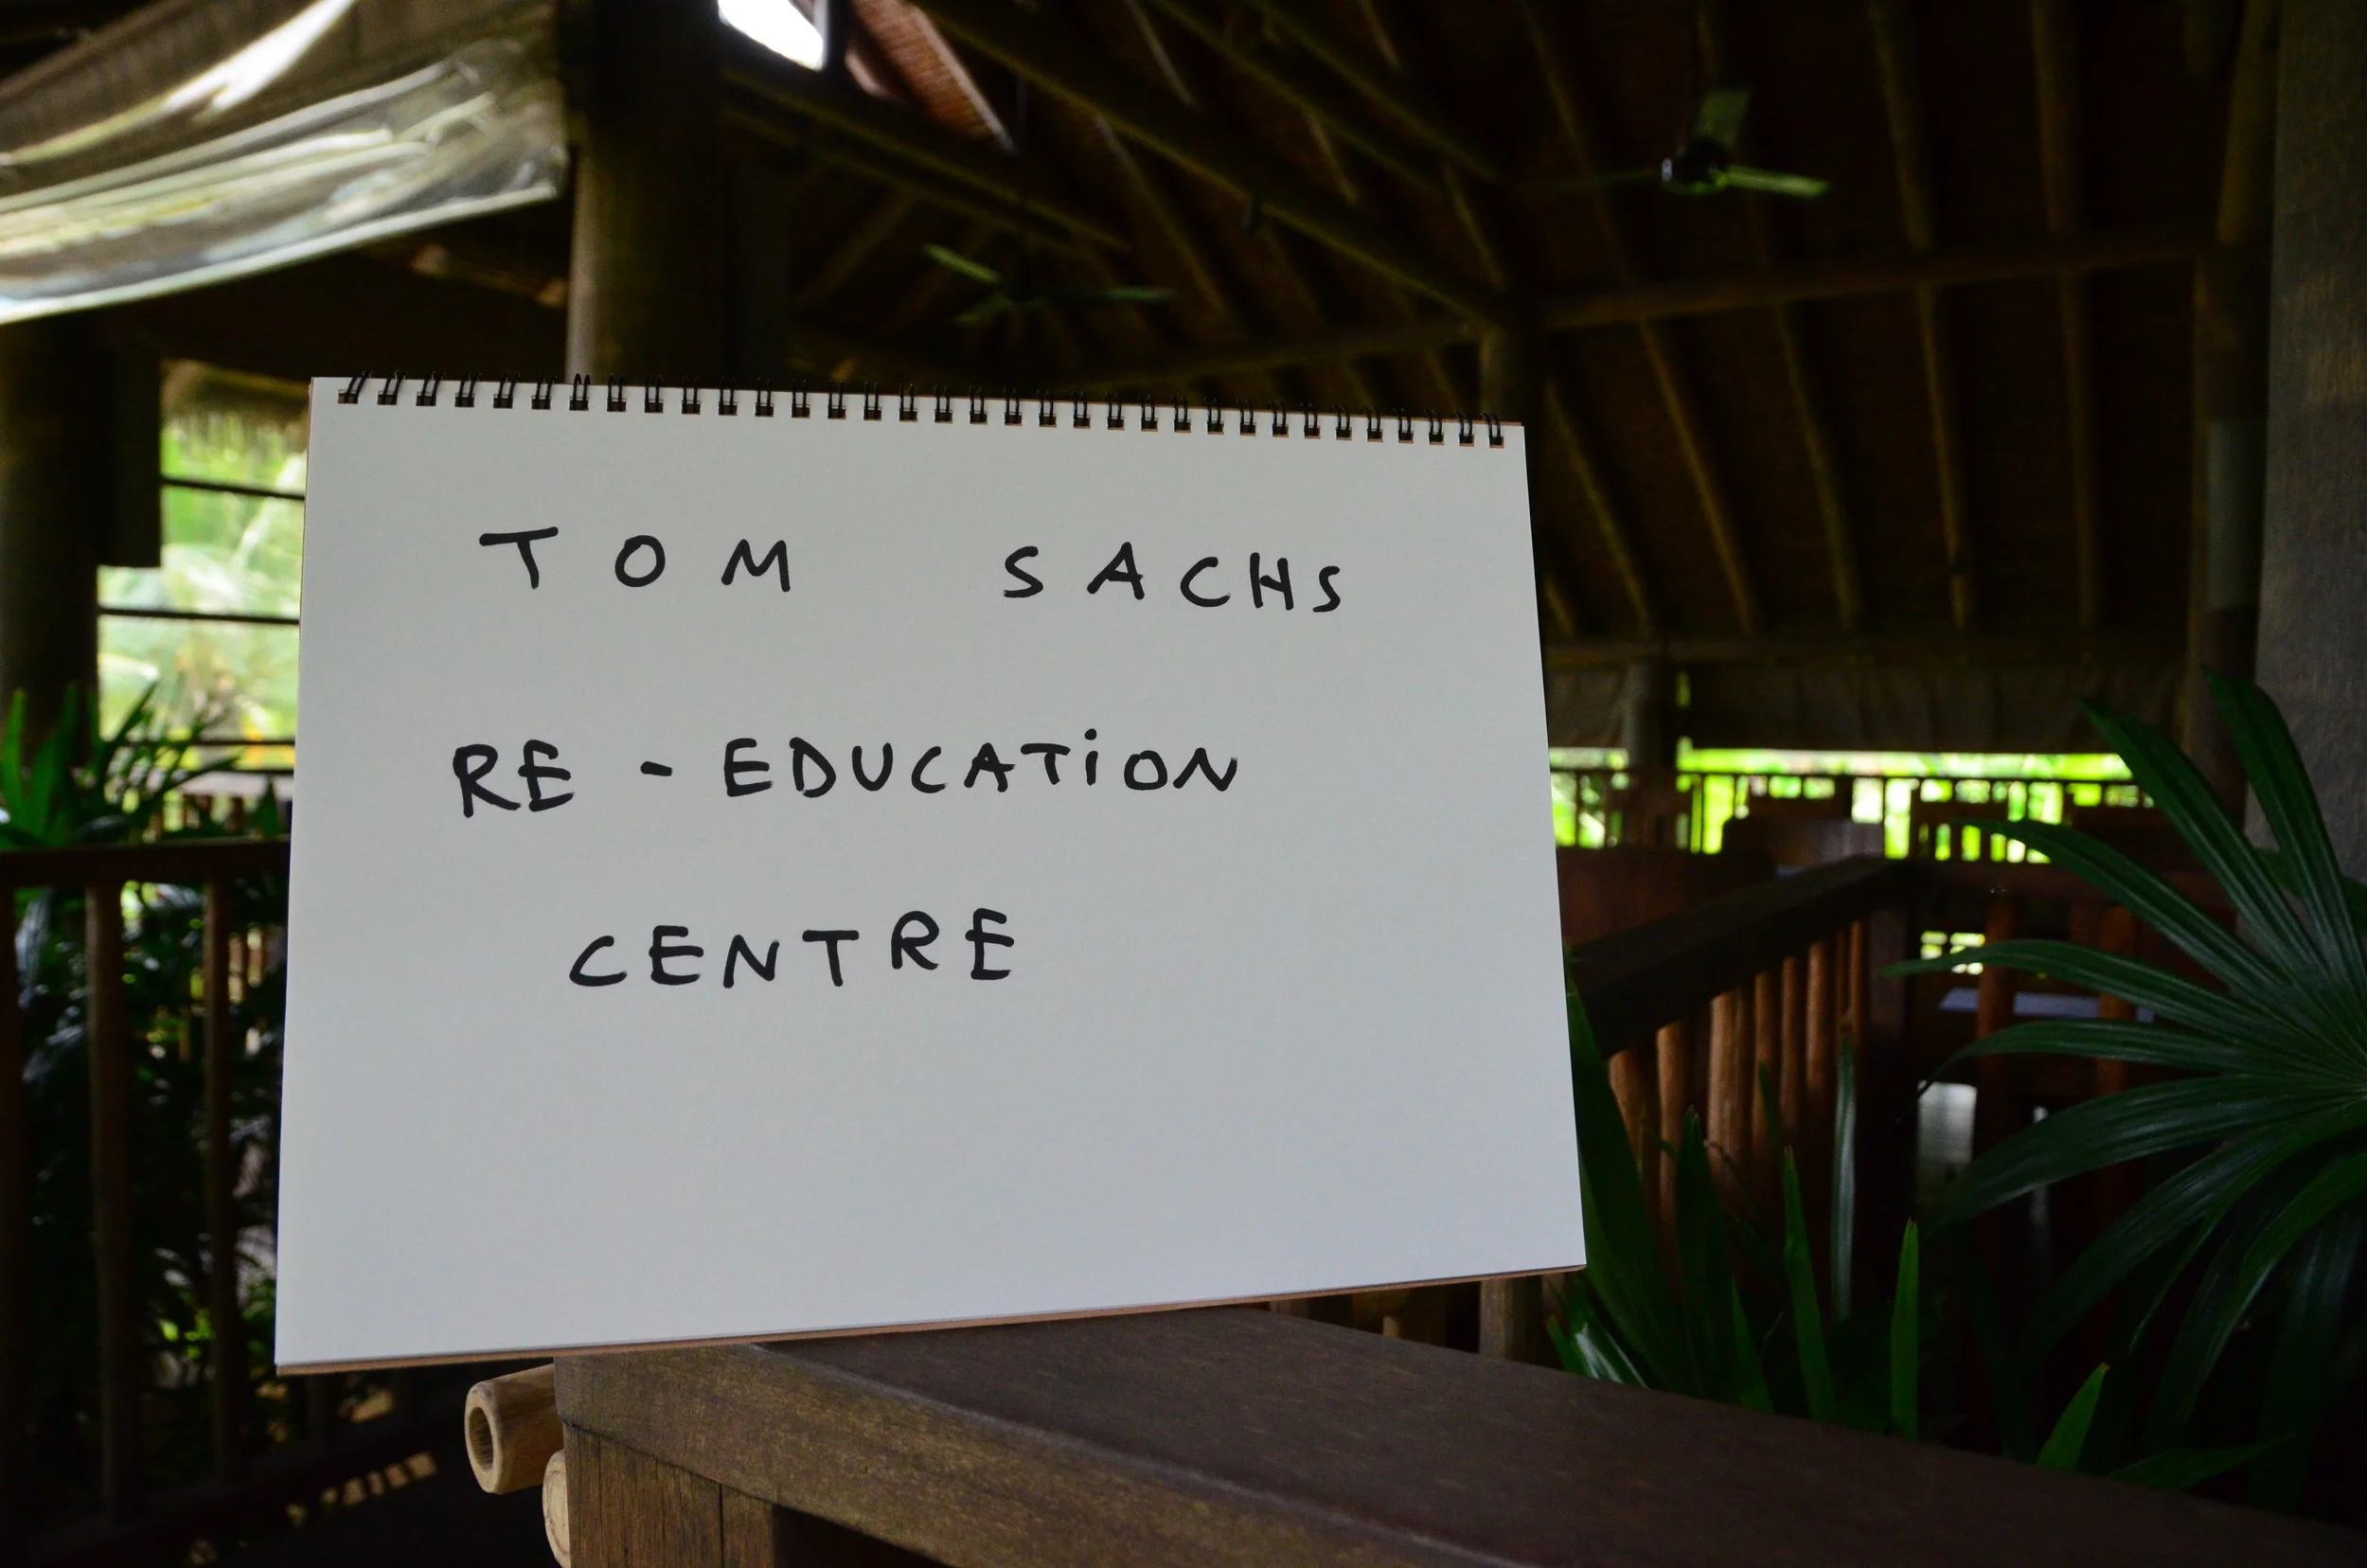 TOM SACHS
RE-EDUCATiON
CENTRE